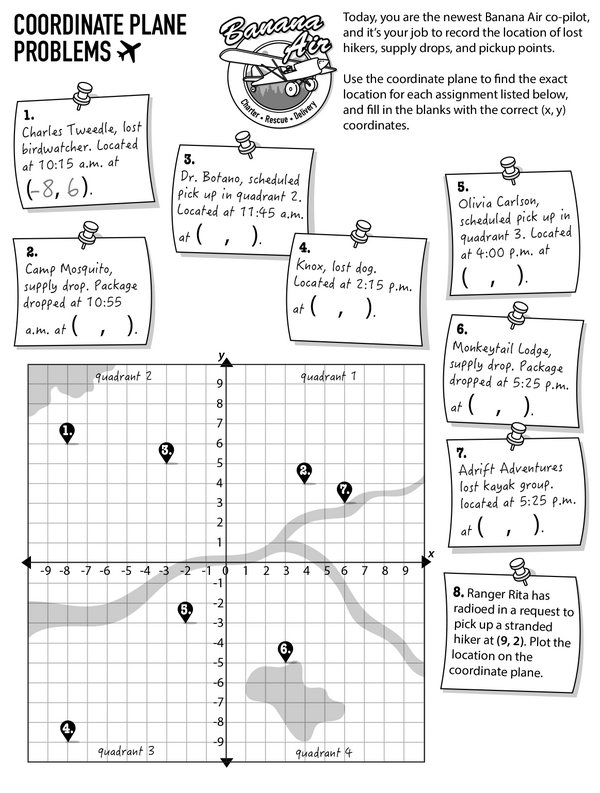 COORDINATE PLANE
PROBLEMS
Banana
Air
Charter • Rescue • Delivery
Today, you are the newest Banana Air co-pilot,
and it's your job to record the location of lost
hikers, supply drops, and pickup points.
Use the coordinate plane to find the exact
location for each assignment listed below,
and fill in the blanks with the correct (x, y)
coordinates.
1.
Charles Tweedle, lost
birdwatcher. Located
at 10:15 a.m. at
(-8, 6).
2.
Camp Mosquito,
supply drop. Package
dropped at 10:55
a.m. at ( , ).
3.
Dr. Botano, scheduled
pick up in quadrant 2.
Located at 11:45 a.m.
at ( , ).
4.
Knox, lost dog.
Located at 2:15 p.m.
at ( , ).
5.
Olivia Carlson,
scheduled pick up in
quadrant 3. Located
at 4:00 p.m. at
( , ).
6.
Monkeytail Lodge,
supply drop. Package
dropped at 5:25 p.m.
at ( , ).
7.
Adrift Adventures
lost kayak group.
located at 5:25 p.m.
at ( , ).
8. Ranger Rita has
radioed in a request to
pick up a stranded
hiker at (9, 2). Plot the
location on the
coordinate plane.
y
quadrant 2 quadrant 1
9
8
7
1.
6
3.
5
2.
4
7.
3
2
1
x
-9 -8 -7 -6 -5 -4 -3 -2 -1 0 1 2 3 4 5 6 7 8 9
-1
-2
5.
-3
-4
6.
-5
-6
-7
-8
4.
-9
quadrant 3 quadrant 4